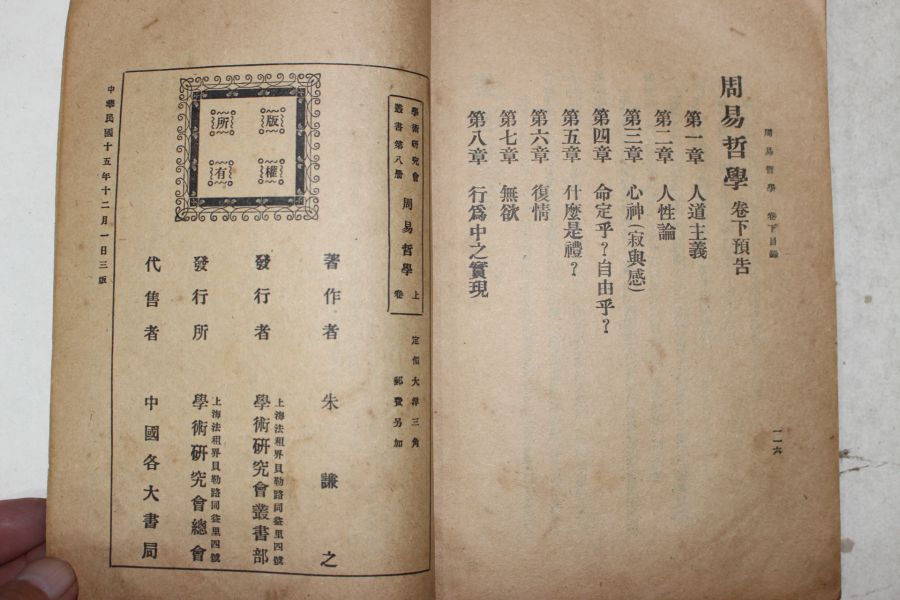 周易哲學 卷下目錄
一一六
周易哲學 卷下預告
第一章 人道主義
第二章 人性論
第三章 心神(寂與感)
第四章 命定乎？自由乎？
第五章 什麼是禮？
第六章 復情
第七章 無欲
第八章 行爲中之實現
學術研究會
叢書第八册
周易哲學 上卷
定價大洋三角
郵費另加
版權
所有
著作者 朱謙之
發行者 上海法租界貝勒路同益里四號
學術研究會叢書部
發行所 上海法租界貝勒路同益里四號
學術研究會總會
代售者 中國各大書局
中華民國十五年十二月一日三版